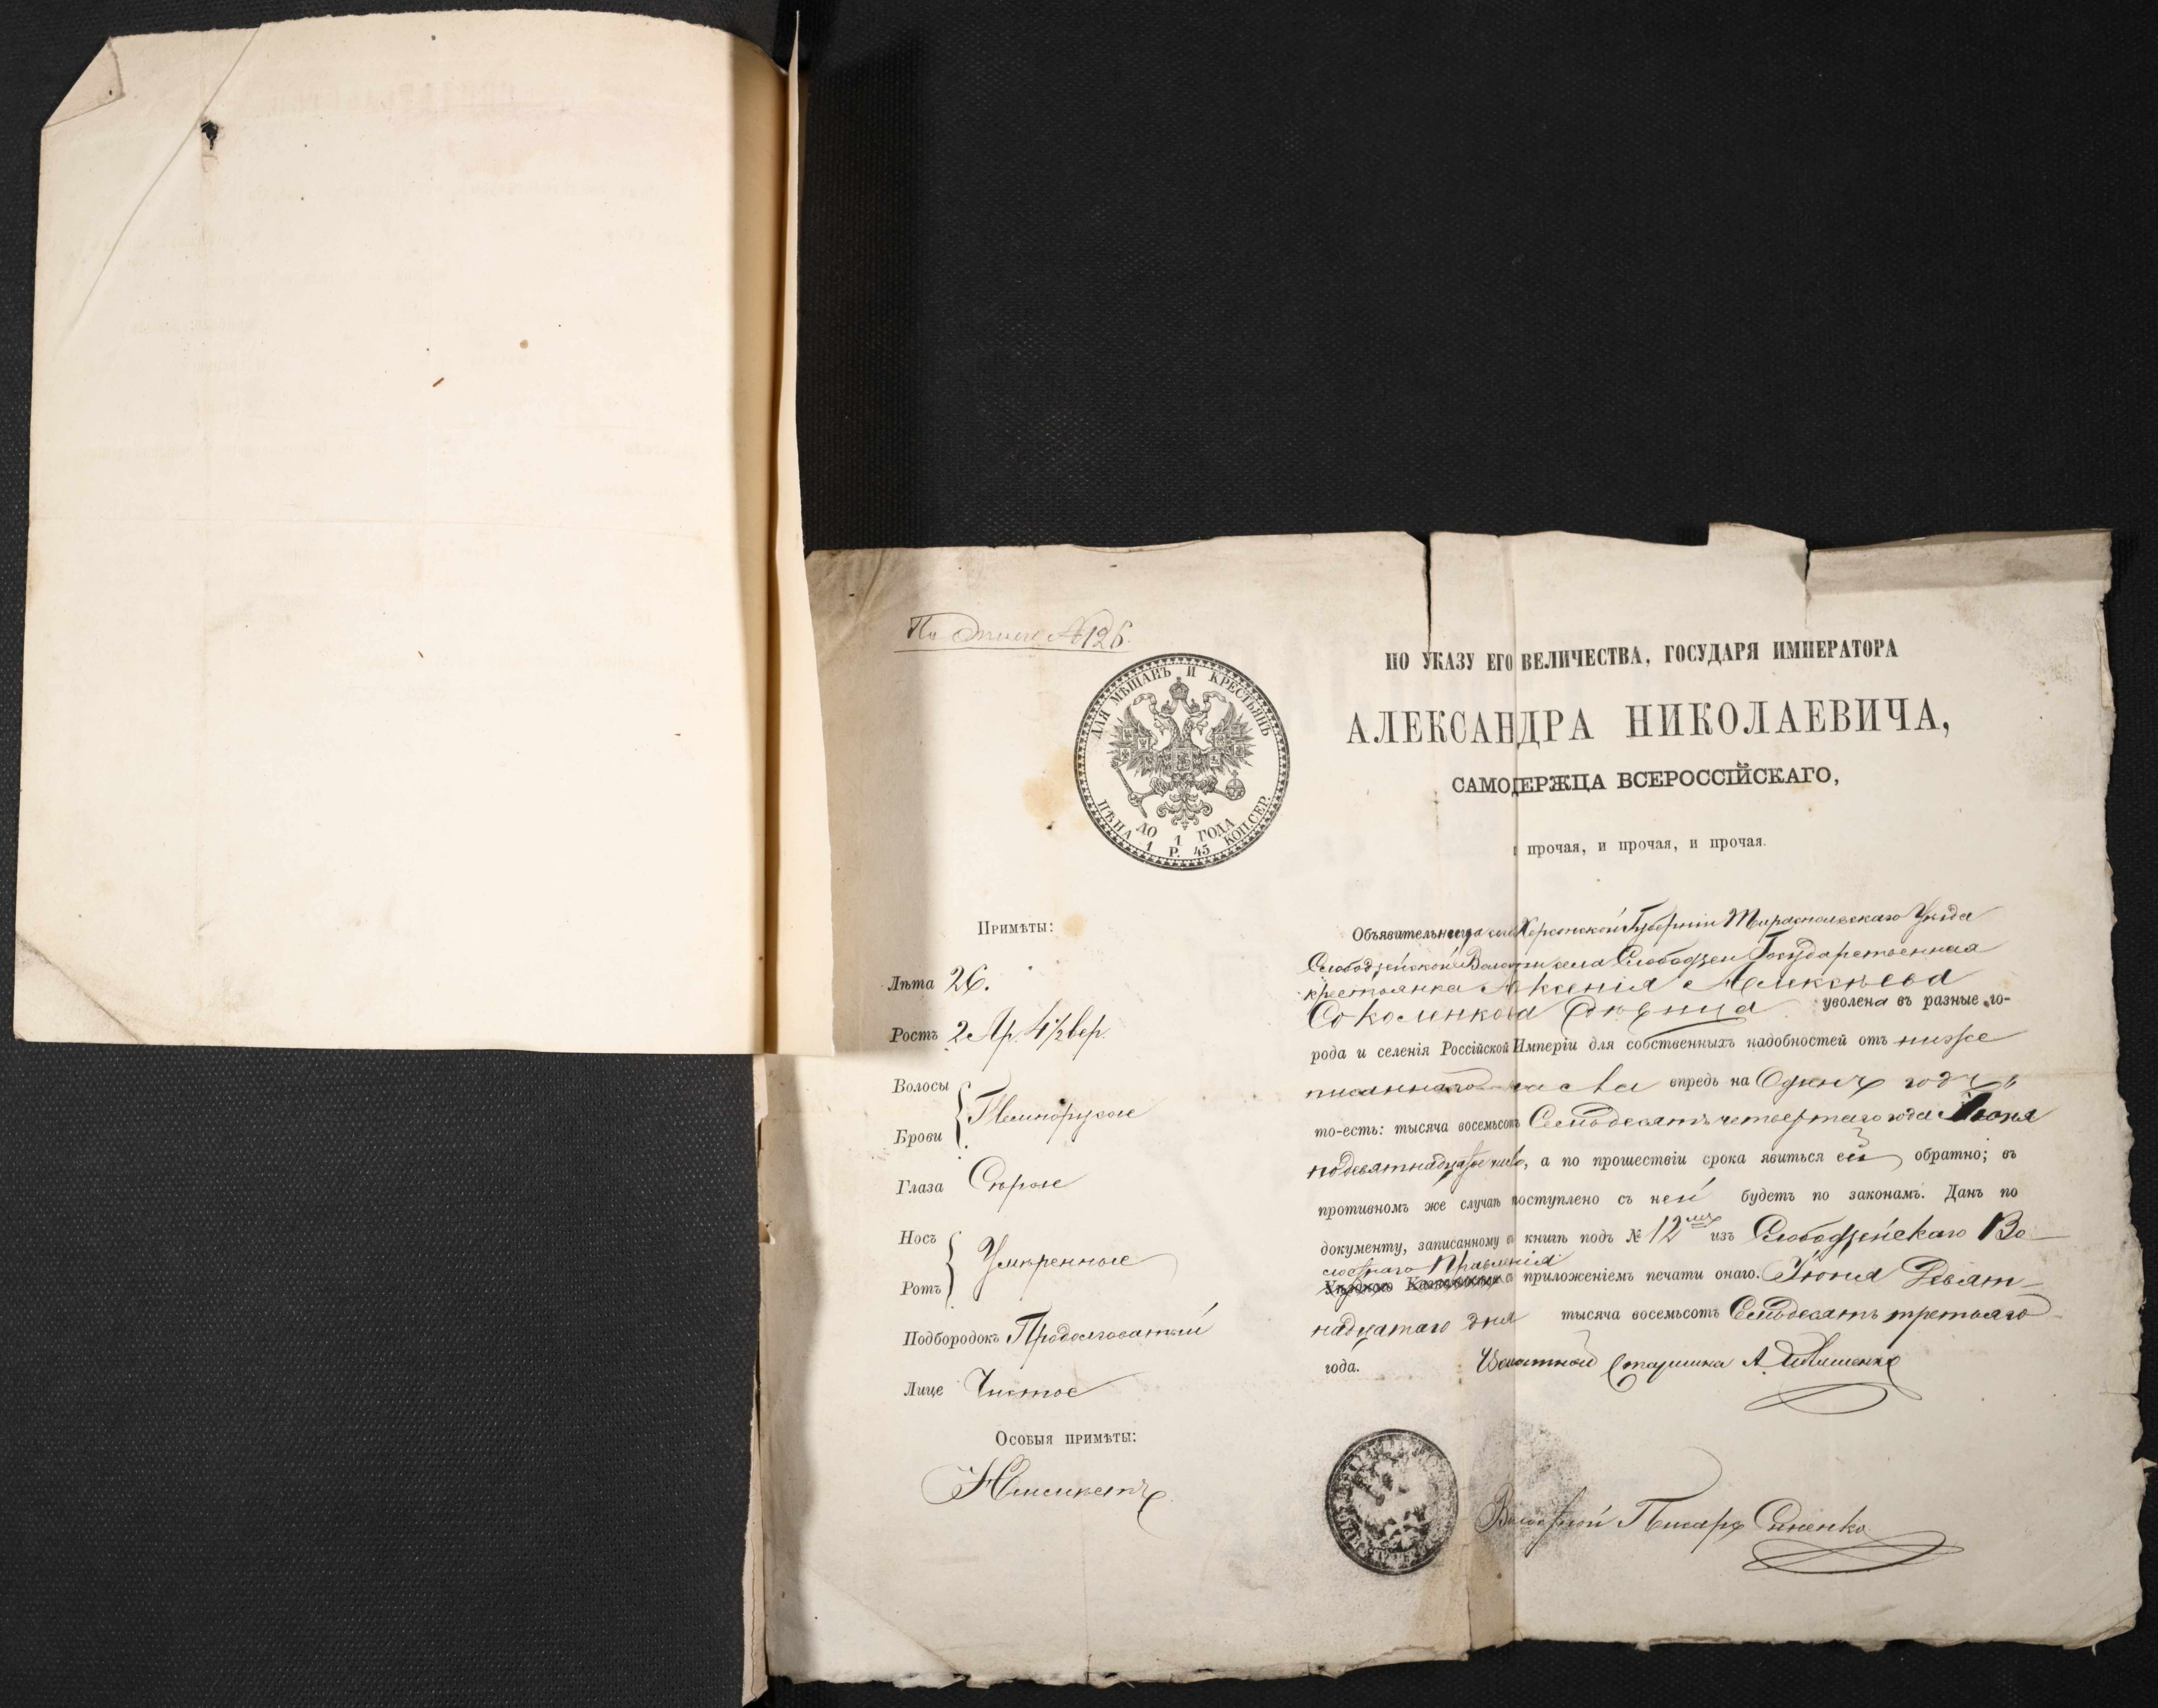 По описи №126.
ДЛЯ МѢЩАНЪ И КРЕСТЬЯНЪ
ЦѢНА 1 Р. 45 КОП. СЕР.
ДО 1 ГОДА
ПО УКАЗУ ЕГО ВЕЛИЧЕСТВА, ГОСУДАРЯ ИМПЕРАТОРА
АЛЕКСАНДРА НИКОЛАЕВИЧА,
САМОДЕРЖЦА ВСЕРОССІЙСКАГО,
и прочая, и прочая, и прочая.
Примѣты:
Лѣта 26.
Ростъ 2 Ар. 4½ вер.
Волосы
Брови
Темнорусые
Глаза Сѣрые
Носъ
Ротъ
Умѣренные
Подбородокъ Продолговатый
Лице Чистое
Особыя примѣты:
Неимѣетъ
Объявительница сего Херсонской Губерніи Тираспольскаго Уѣзда
Слободзейской Волости села Слободзеи Государственная
крестьянка Аксенія Алексѣева
Соколенкова Дѣвица уволена въ разные го-
рода и селенія Россійской Имперіи для собственныхъ надобностей отъ ниже
писаннаго числа впредь на Одинъ годъ
то-есть: тысяча восемьсотъ Семьдесятъ четвертаго года Іюня
подевятнадцатое число, а по прошествіи срока явиться ей обратно; въ
противномъ же случаѣ поступлено съ ней будетъ по законамъ. Данъ по
документу, записанному въ книгѣ подъ № 12мъ изъ Слободзейскаго Во
лостнаго Правленія
съ приложеніемъ печати онаго. Іюня Девят-
надцатаго дня тысяча восемьсотъ Семьдесятъ третьяго
года.
Волостной Старшина А.
Волостной Писарь Синенко